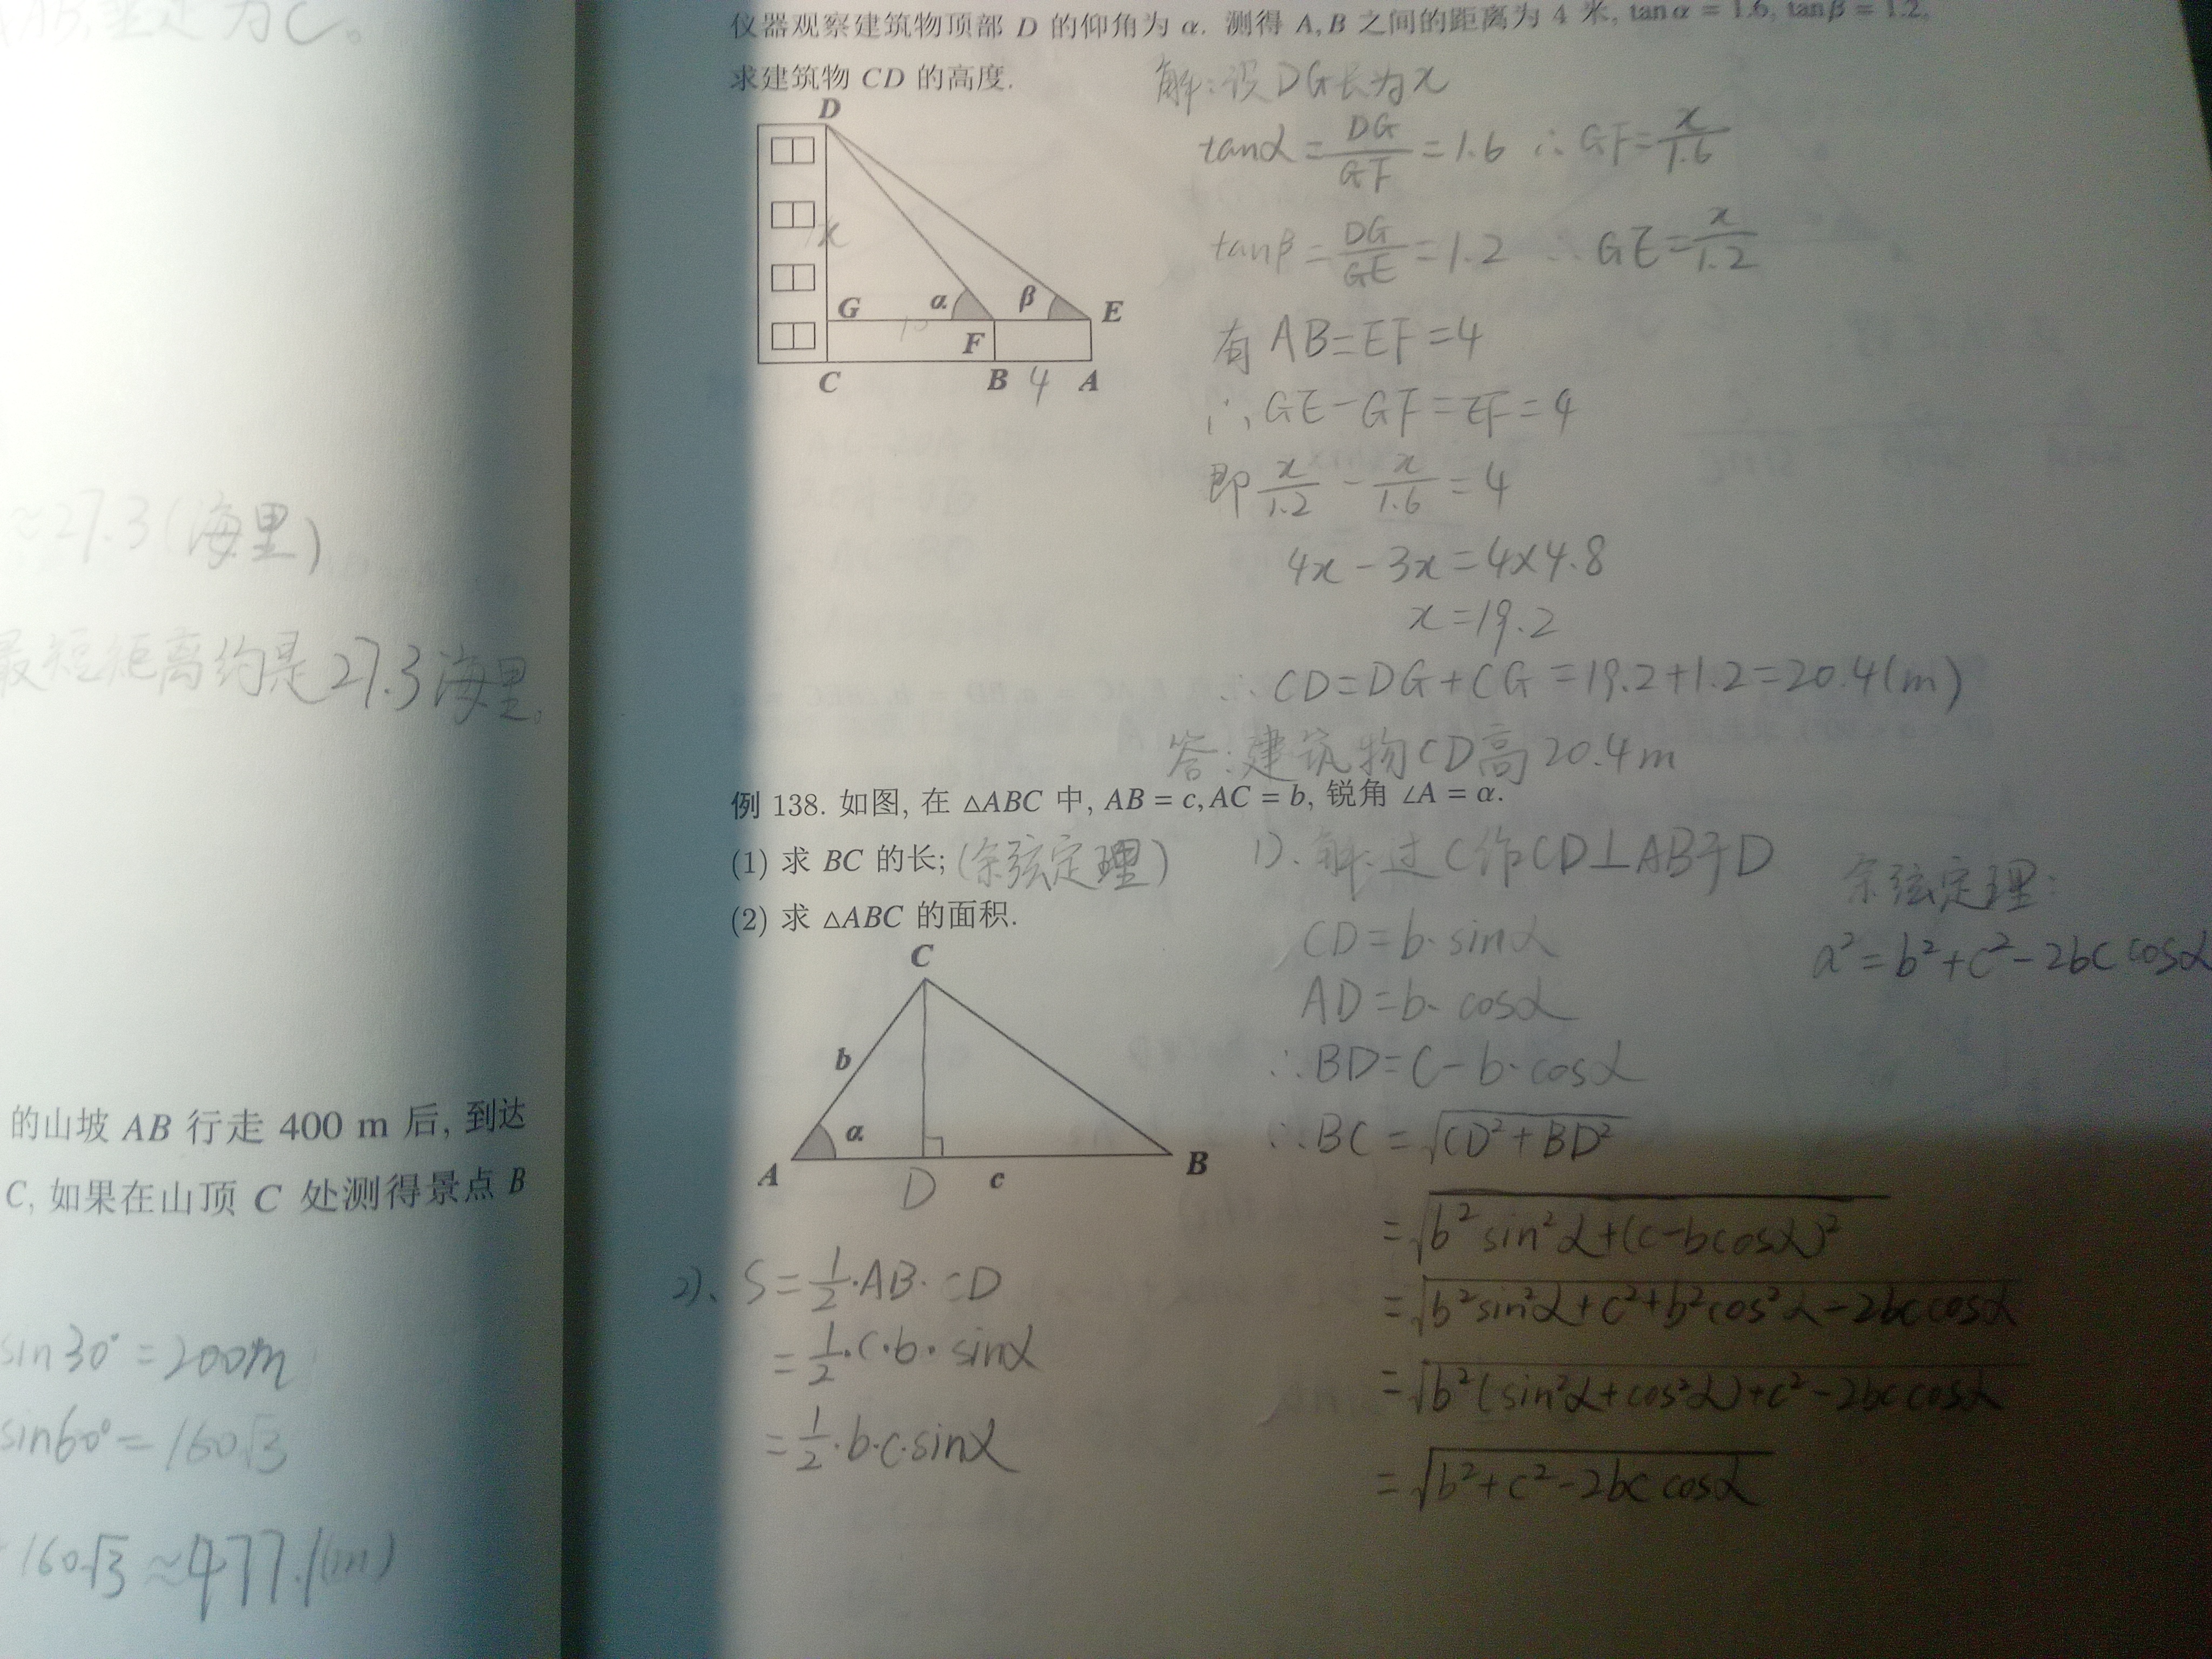 AB,垂足为C。
≈27.3(海里)
最短距离约是27.3海里。
的山坡 AB 行走 400 m 后, 到达
C, 如果在山顶 C 处测得景点 B
sin30°=200m
sin60°=160√3
160√3≈477.1(m)
仪器观察建筑物顶部 D 的仰角为 α. 测得 A, B 之间的距离为 4 米, tan α = 1.6, tan β = 1.2,
求建筑物 CD 的高度.
解:设DG长为x
D
x
G α β E
F
C B 4 A
tanα=DG/GF=1.6 ∴GF=x/1.6
tanβ=DG/GE=1.2 ∴GE=x/1.2
有 AB=EF=4
∴GE-GF=EF=4
即 x/1.2 - x/1.6 = 4
4x-3x=4×4.8
x=19.2
∴CD=DG+CG=19.2+1.2=20.4(m)
答:建筑物CD高20.4m
例 138. 如图, 在 △ABC 中, AB = c, AC = b, 锐角 ∠A = α.
(1) 求 BC 的长;(余弦定理)
(2) 求 △ABC 的面积.
C
b
α
A D c B
1).解:过C作CD⊥AB于D
CD=b·sinα
AD=b·cosα
∴BD=c-b·cosα
∴BC=√(CD²+BD²)
=√(b²sin²α+(c-bcosα)²)
=√(b²sin²α+c²+b²cos²α-2bccosα)
=√(b²(sin²α+cos²α)+c²-2bccosα)
=√(b²+c²-2bccosα)
余弦定理:
a²=b²+c²-2bccosα
2)、S=1/2·AB·CD
=1/2·c·b·sinα
=1/2·b·c·sinα